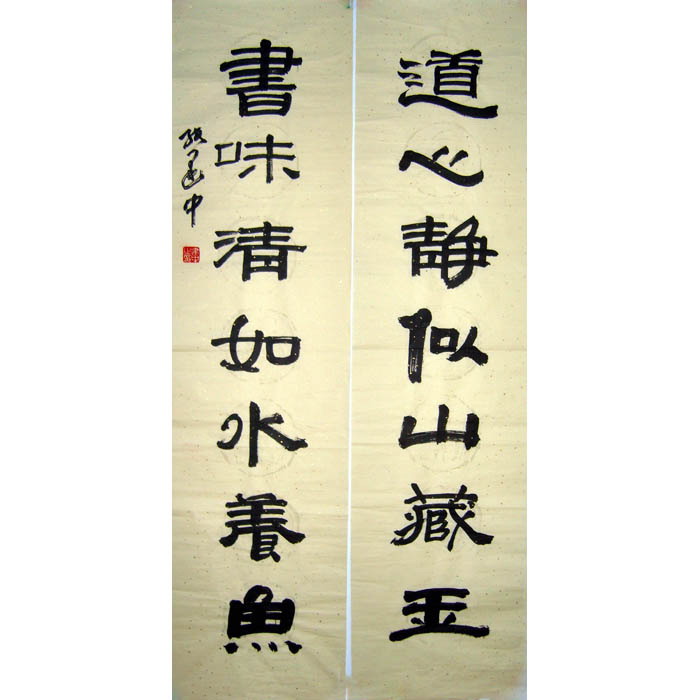 道心静似山藏玉
書味清如水養魚
張建中